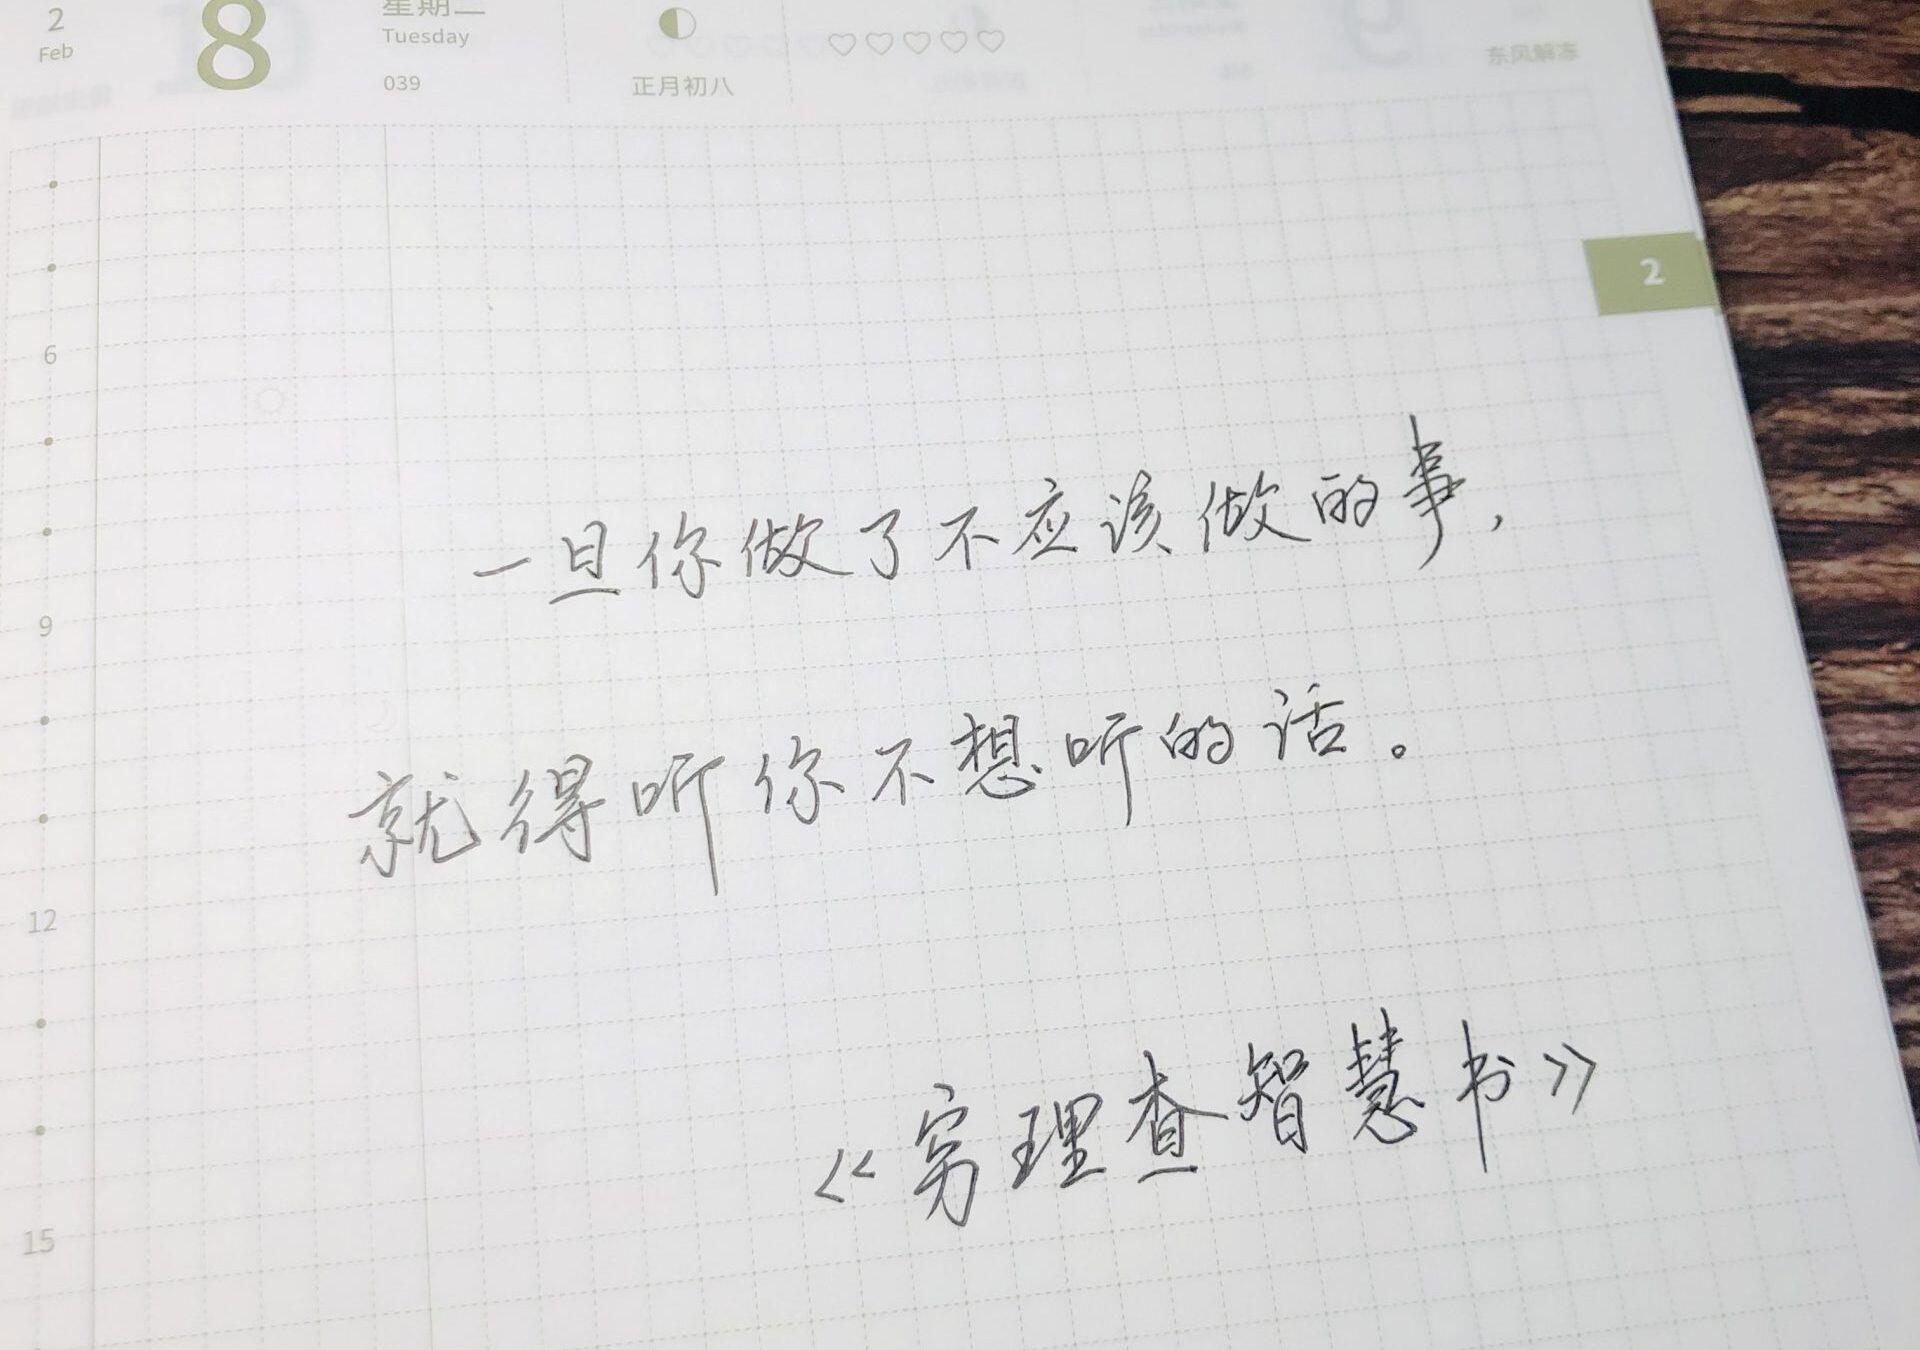 2 8 星期二
Feb Tuesday
039 正月初八
东风解冻
2
6
9
12
15
一旦你做了不应该做的事，
就得听你不想听的话。
《穷理查智慧书》